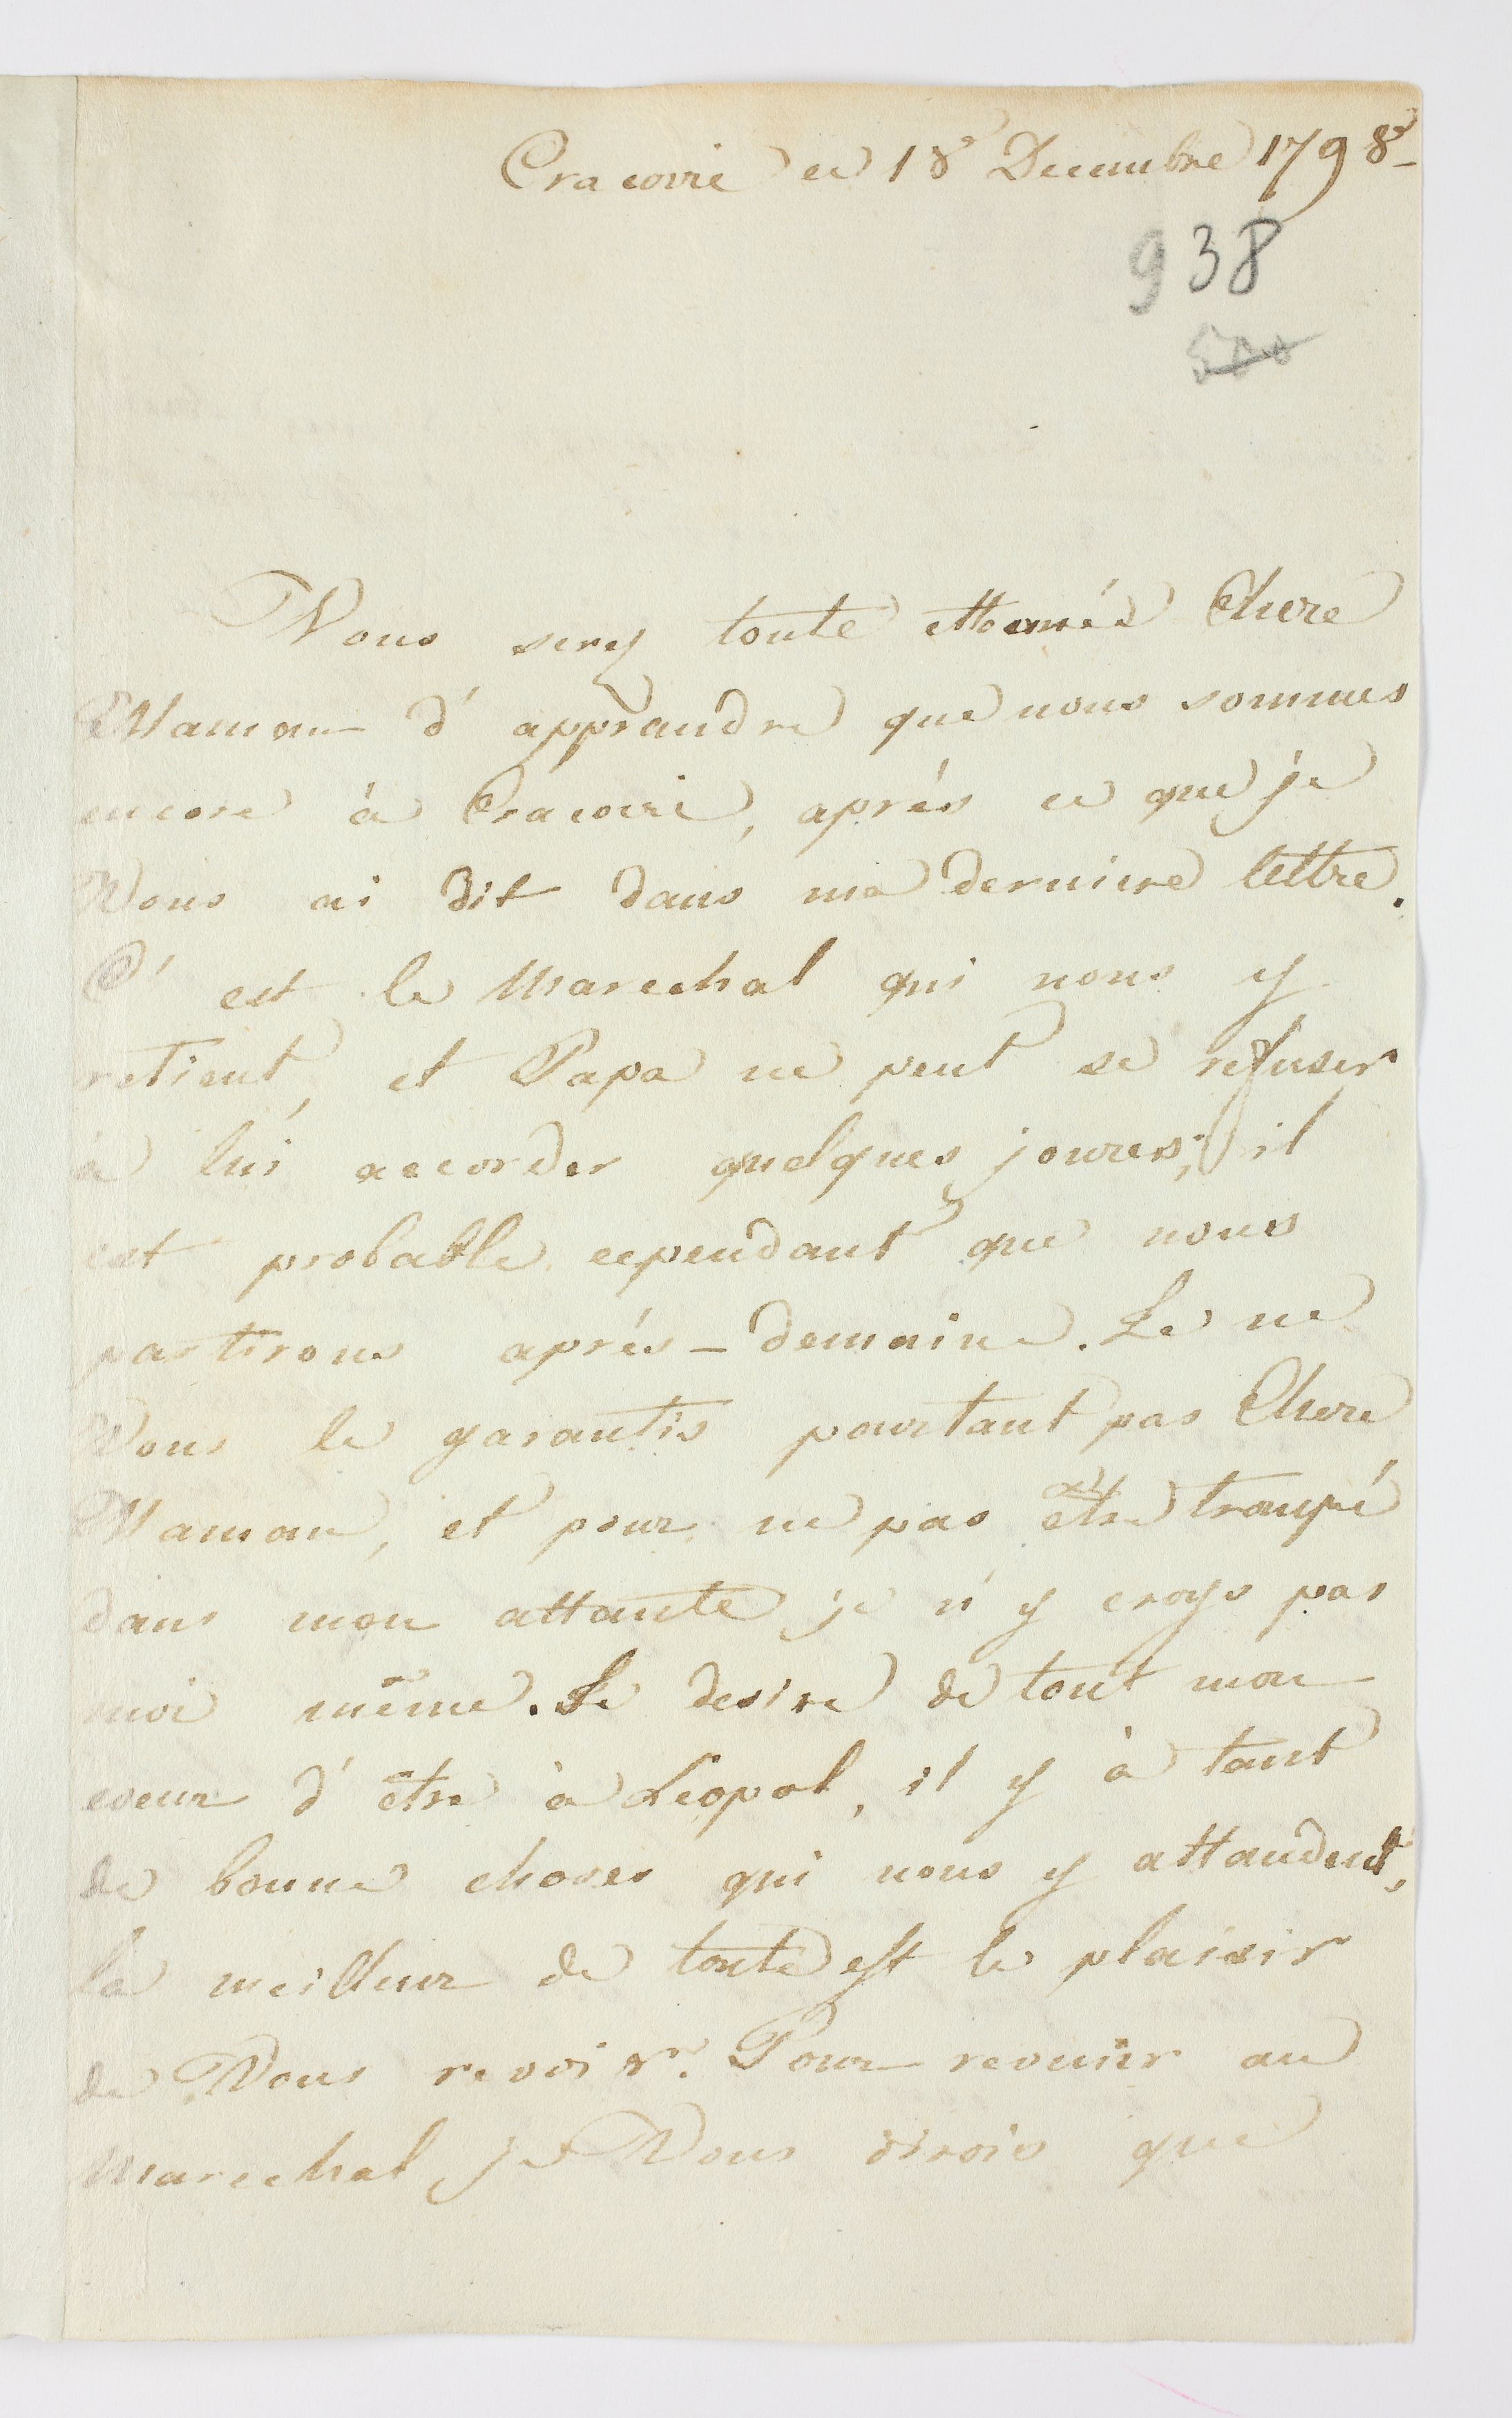 Cracovie ce 18 Decembre 1798
938
500
Vous serez toute ettonnée Chere
Maman d'apprandre que nous sommes
encore à Cracovie, aprés ce que je
Vous ai dit dans ma derniere lettre.
C'est le Marechal qui nous y
retient, et Papa ne peut se refuser
à lui accorder quelques joures; il
est probable cependant que nous
partirons aprés-demaine. Je ne
Vous le garantis pourtant pas Chere
Maman, et pour ne pas être trompé
dans mon attante je n'y croys pas
moi même. Je desire de tout mon
coeur d'être à Léopol, il y à tant
de bonne choses qui nous y attandent,
la meilleur de toute est le plaisir
de Vous revoir. Pour revenir au
Marechal je Vous dirois que